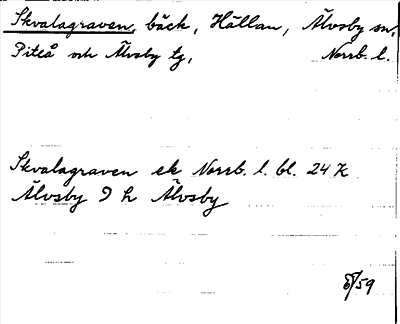 Skvalagraven, bäck, Hällan, Älvsby sn,
Piteå och Älvsby tg, Norrb. l.
Skvalagraven ek Norrb. l. bl. 24 K
Älvsby 9 h Älvsby
/59